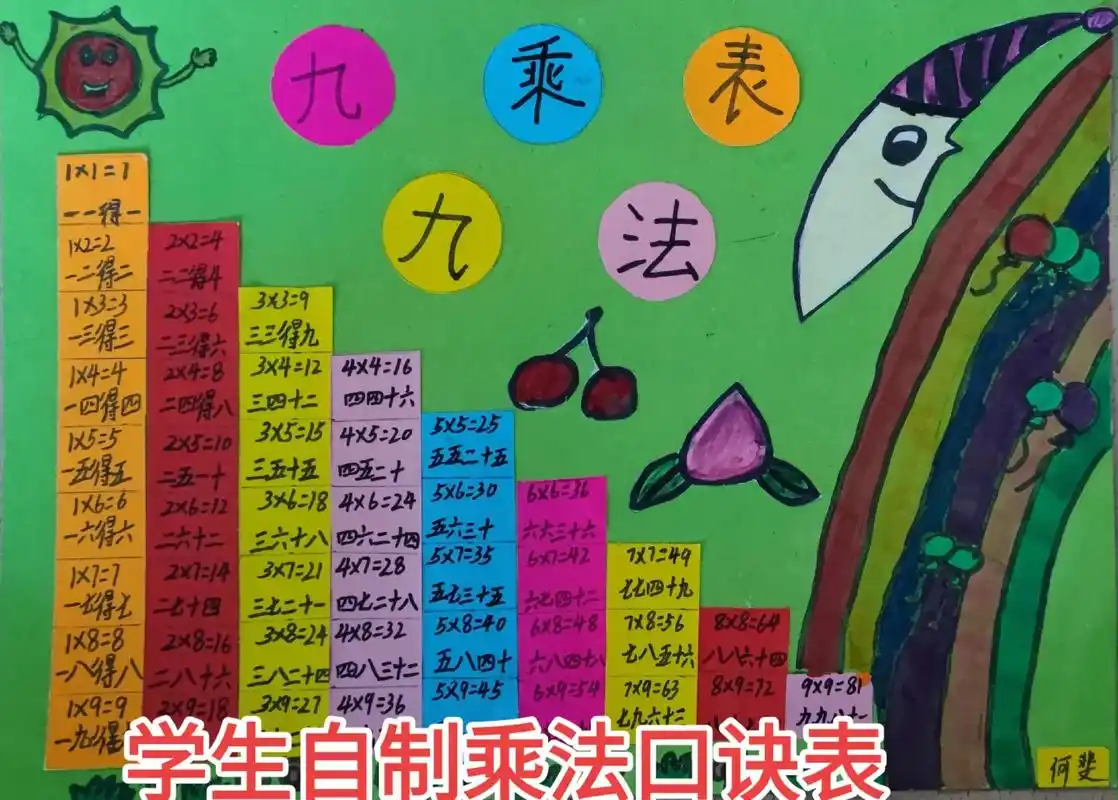 九九乘法表
1×1=1
一一得一
1×2=2
一二得二
1×3=3
一三得三
1×4=4
一四得四
1×5=5
一五得五
1×6=6
一六得六
1×7=7
一七得七
1×8=8
一八得八
1×9=9
一九得
2×2=4
二二得4
2×3=6
二三得六
2×4=8
二四得八
2×5=10
二五一十
2×6=12
二六十二
2×7=14
二七十四
2×8=16
二八十六
2×9=18
3×3=9
三三得九
3×4=12
三四十二
3×5=15
三五十五
3×6=18
三六十八
3×7=21
三七二十一
3×8=24
三八二十四
3×9=27
4×4=16
四四十六
4×5=20
四五二十
4×6=24
四六二十四
4×7=28
四七二十八
4×8=32
四八三十二
4×9=36
5×5=25
五五二十五
5×6=30
五六三十
5×7=35
五七三十五
5×8=40
五八四十
5×9=45
6×6=36
六六三十六
6×7=42
六七四十二
6×8=48
六八四十八
6×9=54
7×7=49
七七四十九
7×8=56
七八五十六
7×9=63
七九六十三
8×8=64
八八六十四
8×9=72
9×9=81
九九八十一
学生自制乘法口诀表
何斐